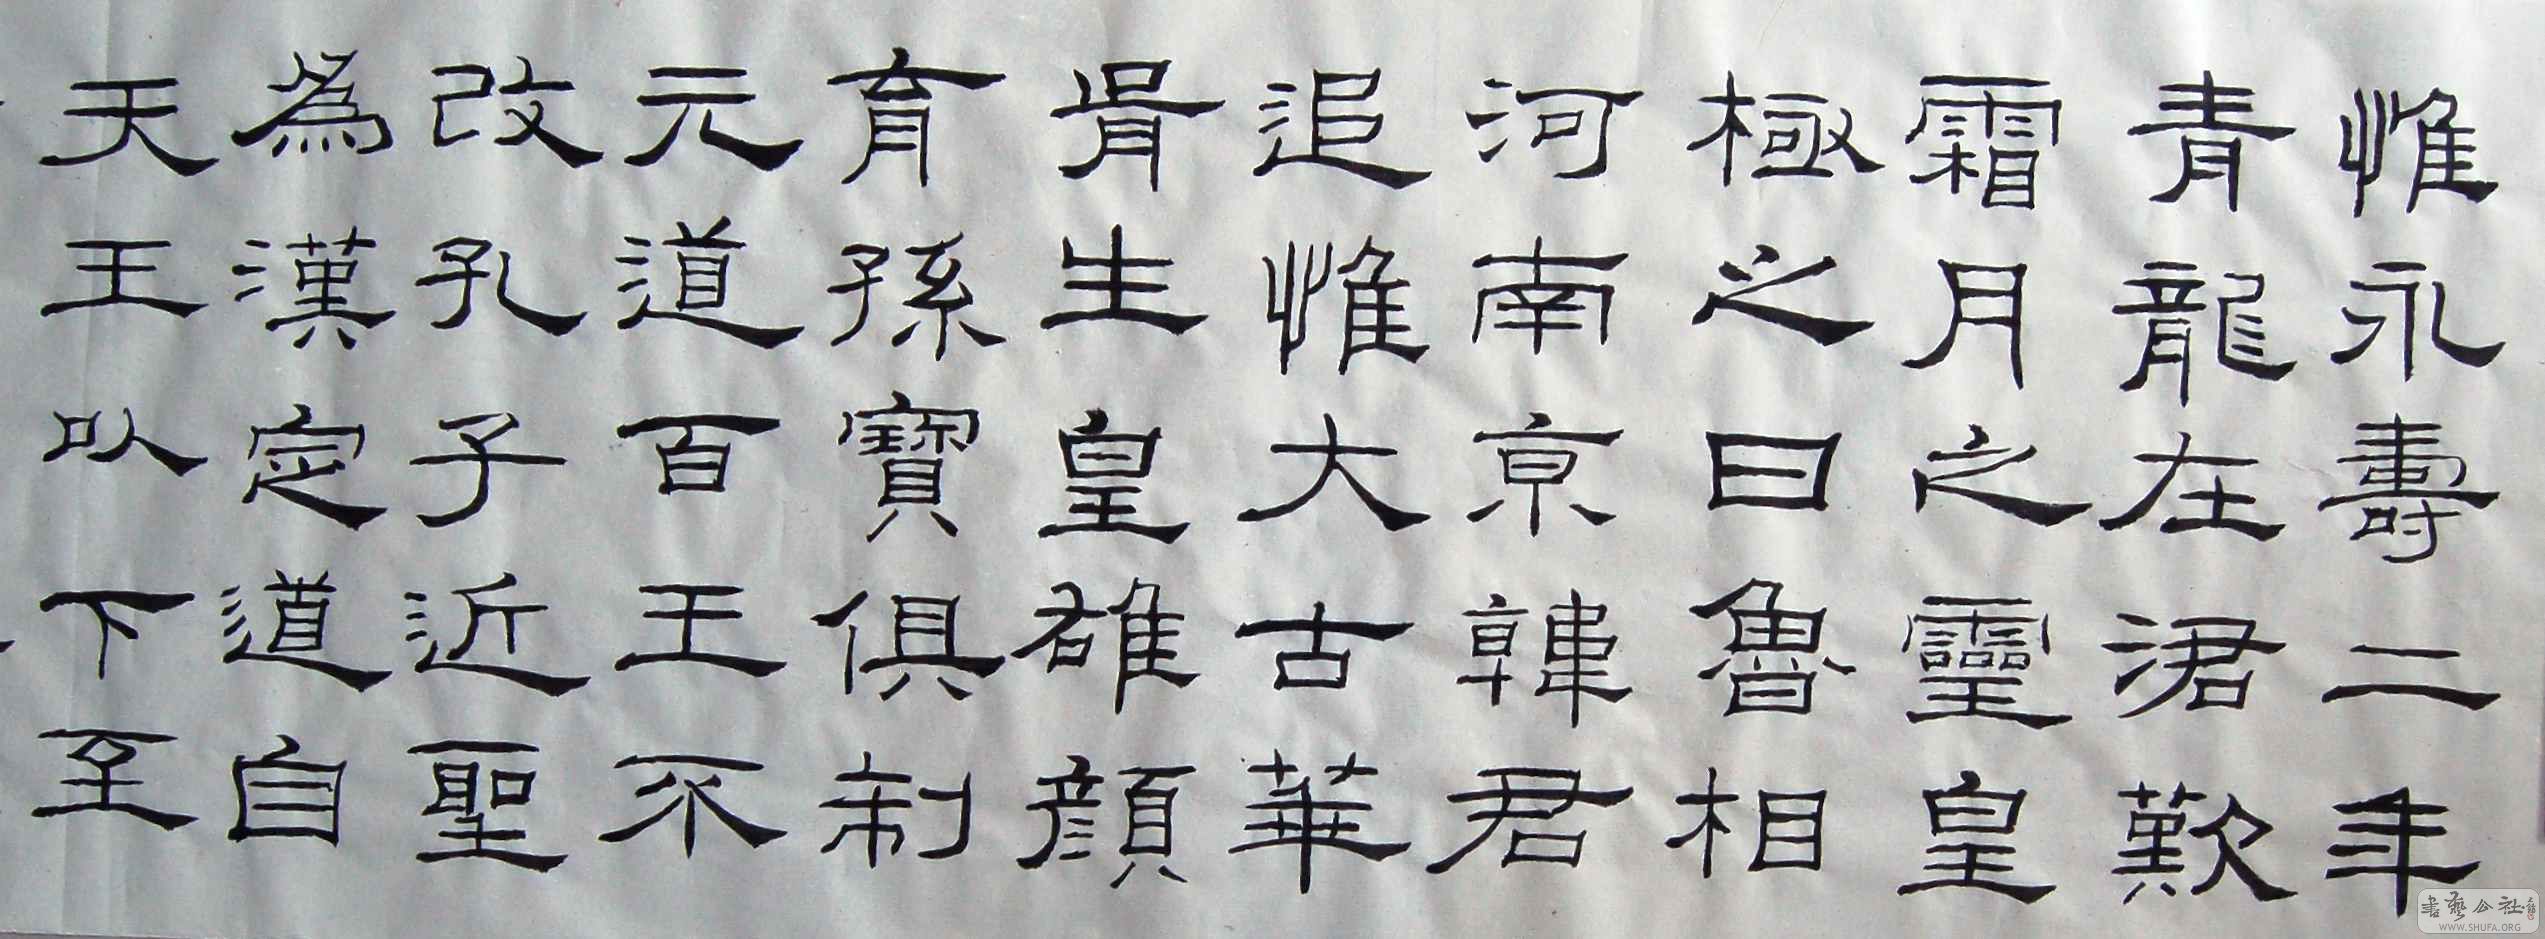 惟永壽二年
青龍在涒歎
霜月之靈皇
極之日魯相
河南京韓君
追惟大古華
胥生皇雄顏
育孫寶俱制
元道百王不
改孔子近聖
為漢定道自
天王以下至
書藝公社
WWW.SHUFA.ORG